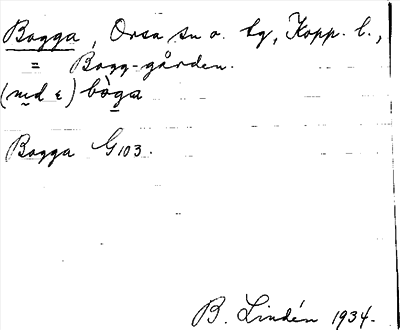 Bogga, Orsa sn o. tg, Kopp. l.,
= Bogg-gården.
(med ε) bòga
Bogga G103.
B. Lindén 1934.